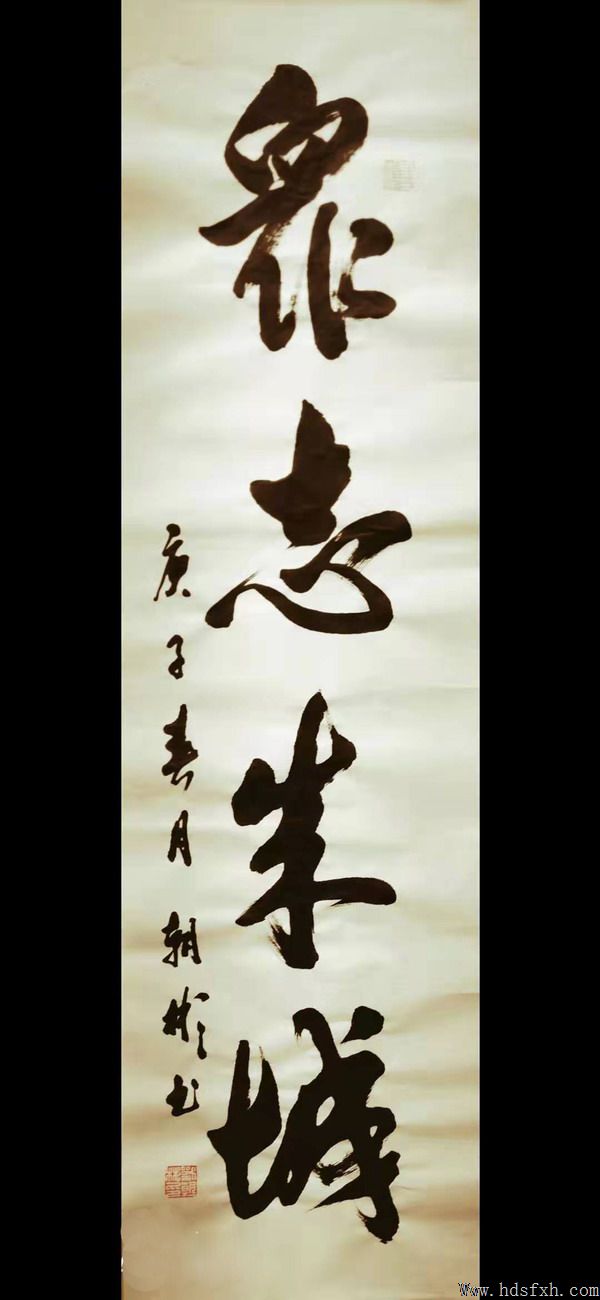 眾志成城
庚子春月朝彬书
www.hdsfxh.com